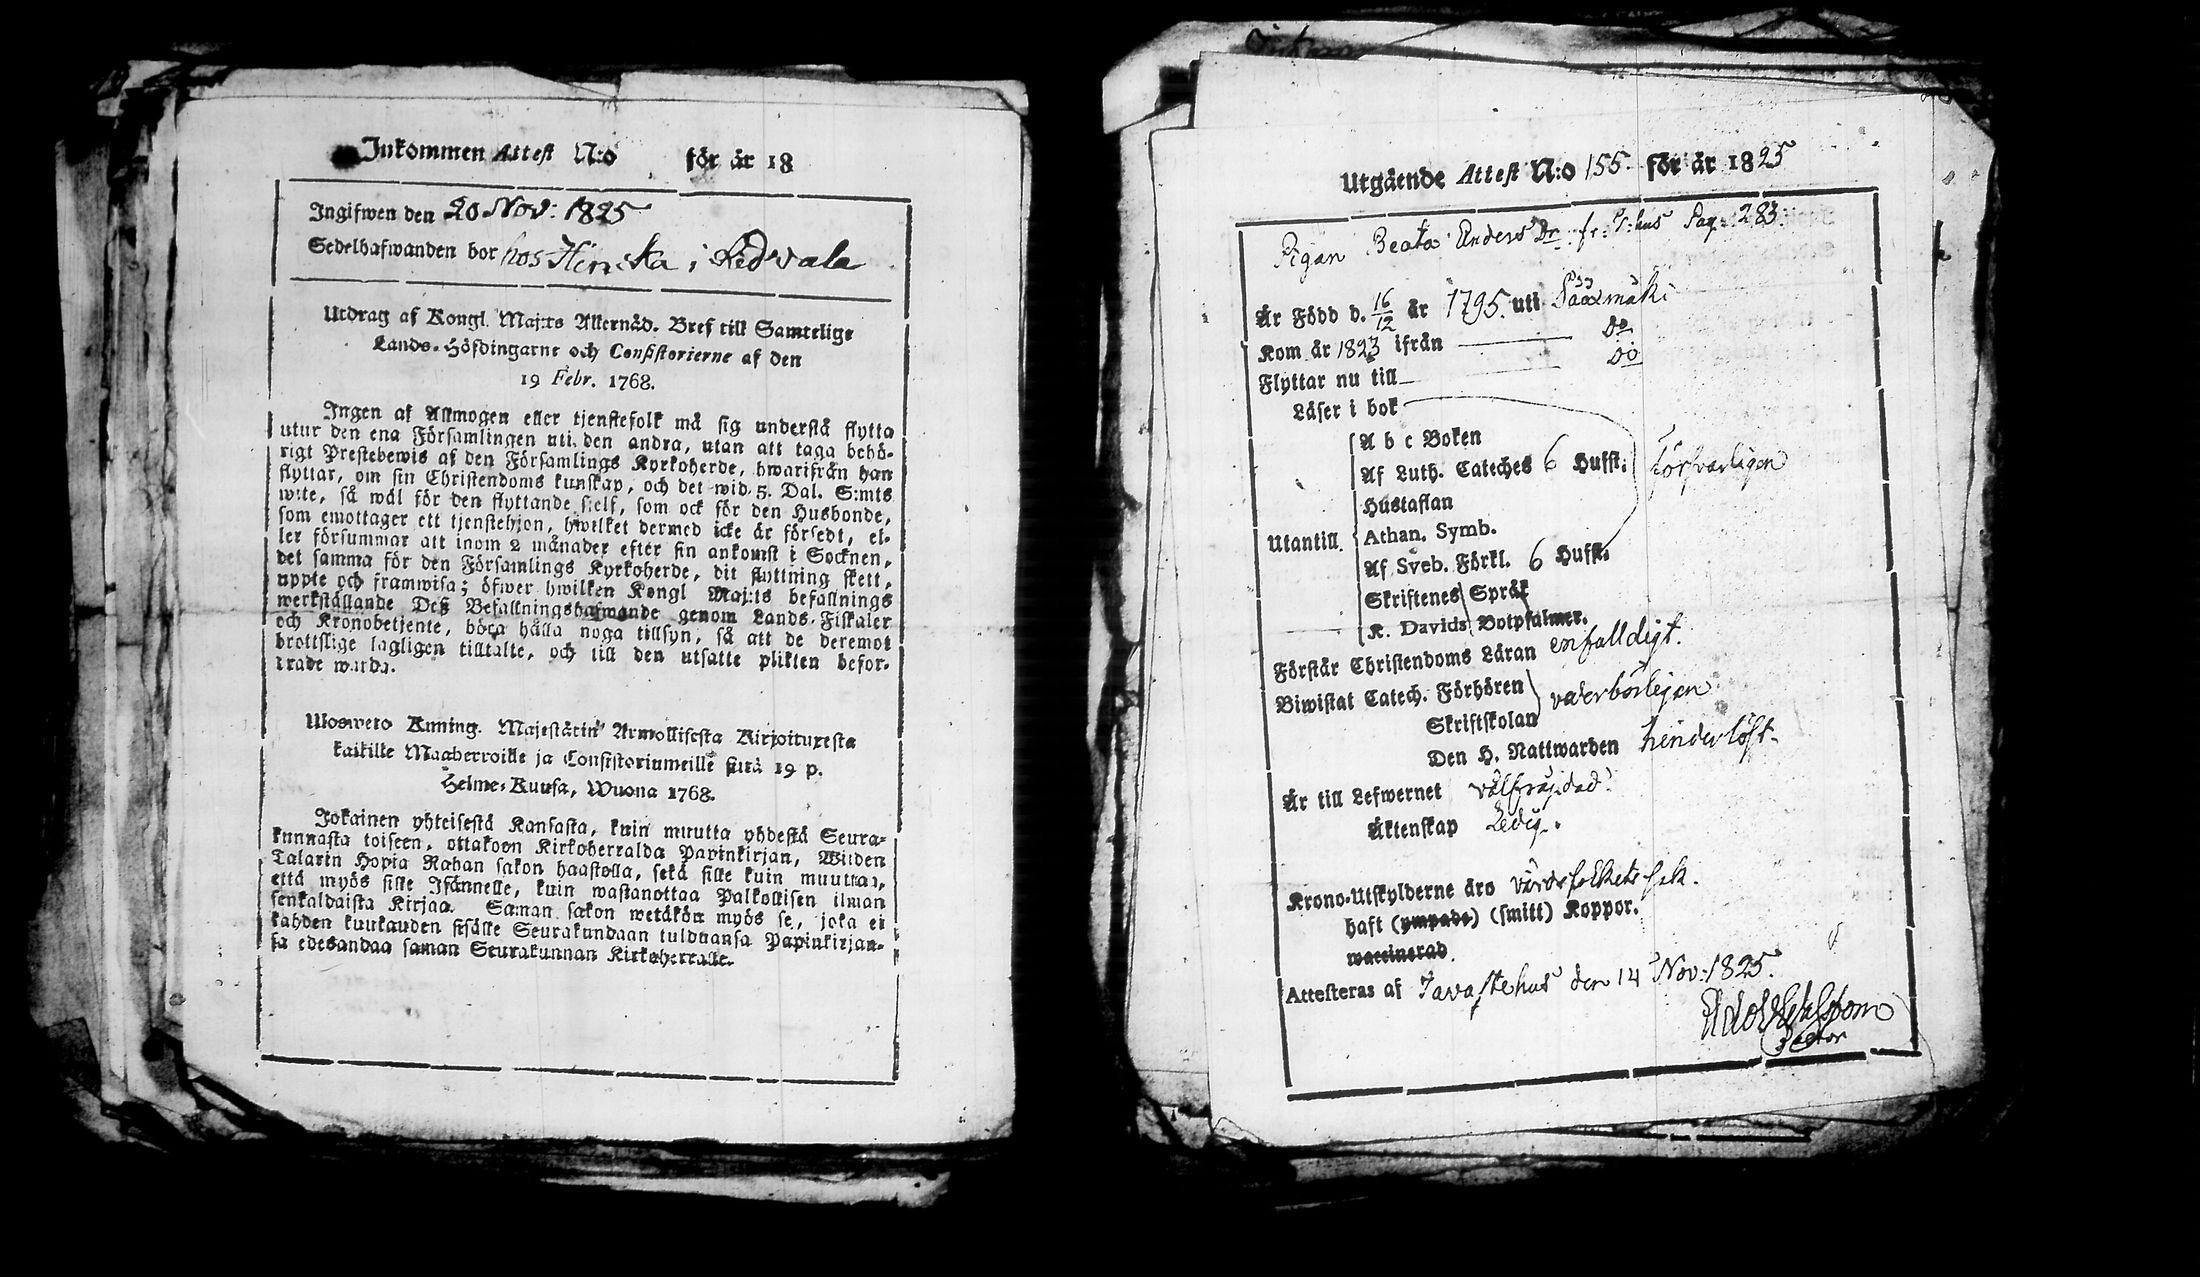 Inkommen Attest N:o för år 18
Ingifwen den 20 Nov: 1825
Sedelhafwanden bor hos i Ledvala
Utdrag af Kongl. Maj:ts Allernåd. Bref till Samtelige
Lands-Höfdingarne och Consistorierne af den
19 Febr. 1768.
Ingen af Allmogen eller tjenstefolk må sig understå flytta
utur den ena Församlingen uti den andra, utan att taga behö-
rigt Prestebewis af den Församlings Kyrkoherde, hwarifrån han
flyttar, om sin Christendoms kunskap, och det wid 5. Dal. S:mts
wite, så wäl för den flyttande sielf, som ock för den Husbonde,
som emottager ett tjenstehjon, hwilket dermed icke är försedt, el-
ler försummar att inom 2 månader efter sin ankomst i Socknen,
det samma för den Församlings Kyrkoherde, dit flyttning skett,
uppte och framwisa; öfwer hwilken Kongl Maj:ts befallnings
werkställande Deß Befallningshafwande genom Lands-Fiskaler
och Kronobetjente, böra hålla noga tillsyn, så att de deremot
brottslige lagligen tilltalte, och till den utsatte plikten befor-
trade warda.
Ulosweto Kuning. Majestätin Armollisesta Kirjoituxesta
kaikille Maaherroille ja Consistoriumeille siitä 19 p.
Helme-Kuusa, Wuona 1768.
Jokainen yhteisestä Kansasta, kuin muutta yhdestä Seura-
kunnasta toiseen, ottakoon Kirkoherralda Papinkirjan, Wiiden
Talarin Hopia Rahan sakon haastolla, sekä sille kuin muuttaa,
että myös sille Isännelle, kuin wastanottaa Palkollisen ilman
senkaldaista Kirjaa. Saman sakon wetäkön myös se, joka ei
kahden kuukauden sisälle Seurakundaan tulduansa Papinkirjan-
sa edesandaa saman Seurakunnan Kirkoherralle.
Utgående Attest N:o 155. för år 1825
Pigan Beata Anders Dr. fr. T:hus Pag: 283.
Är Född d. 16/12 år 1795. uti Sääxmäki
Kom år 1823 ifrån Do
Flyttar nu till Do
Läser i bok
A b c Boken
Af Luth. Cateches 6 Hufst: försvarligen
Hustaflan
Utantill. Athan. Symb.
Af Sveb. Förkl. 6 Hufst.
Skriftenes Språk
K. Davids Botpsalmer.
Förstår Christendoms Läran enfalldigt.
Biwistat Catech. Förhören vederbörligen
Skriftskolan
Den H. Nattwarden hinderlöst.
Är till Lefwernet välfräjdad.
Äktenskap Ledig.
Krono-Utskylderne äro
haft (ympade) (smitt) Koppor.
waccinerad.
Attesteras af Tavastehus den 14 Nov: 1825.
Pastor